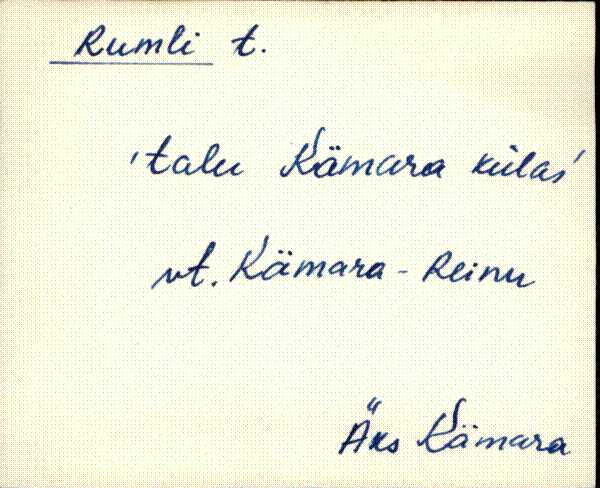 Rumli t.
'talu Kämara külas'
vt. Kämara-Reinu
Äks Kämara